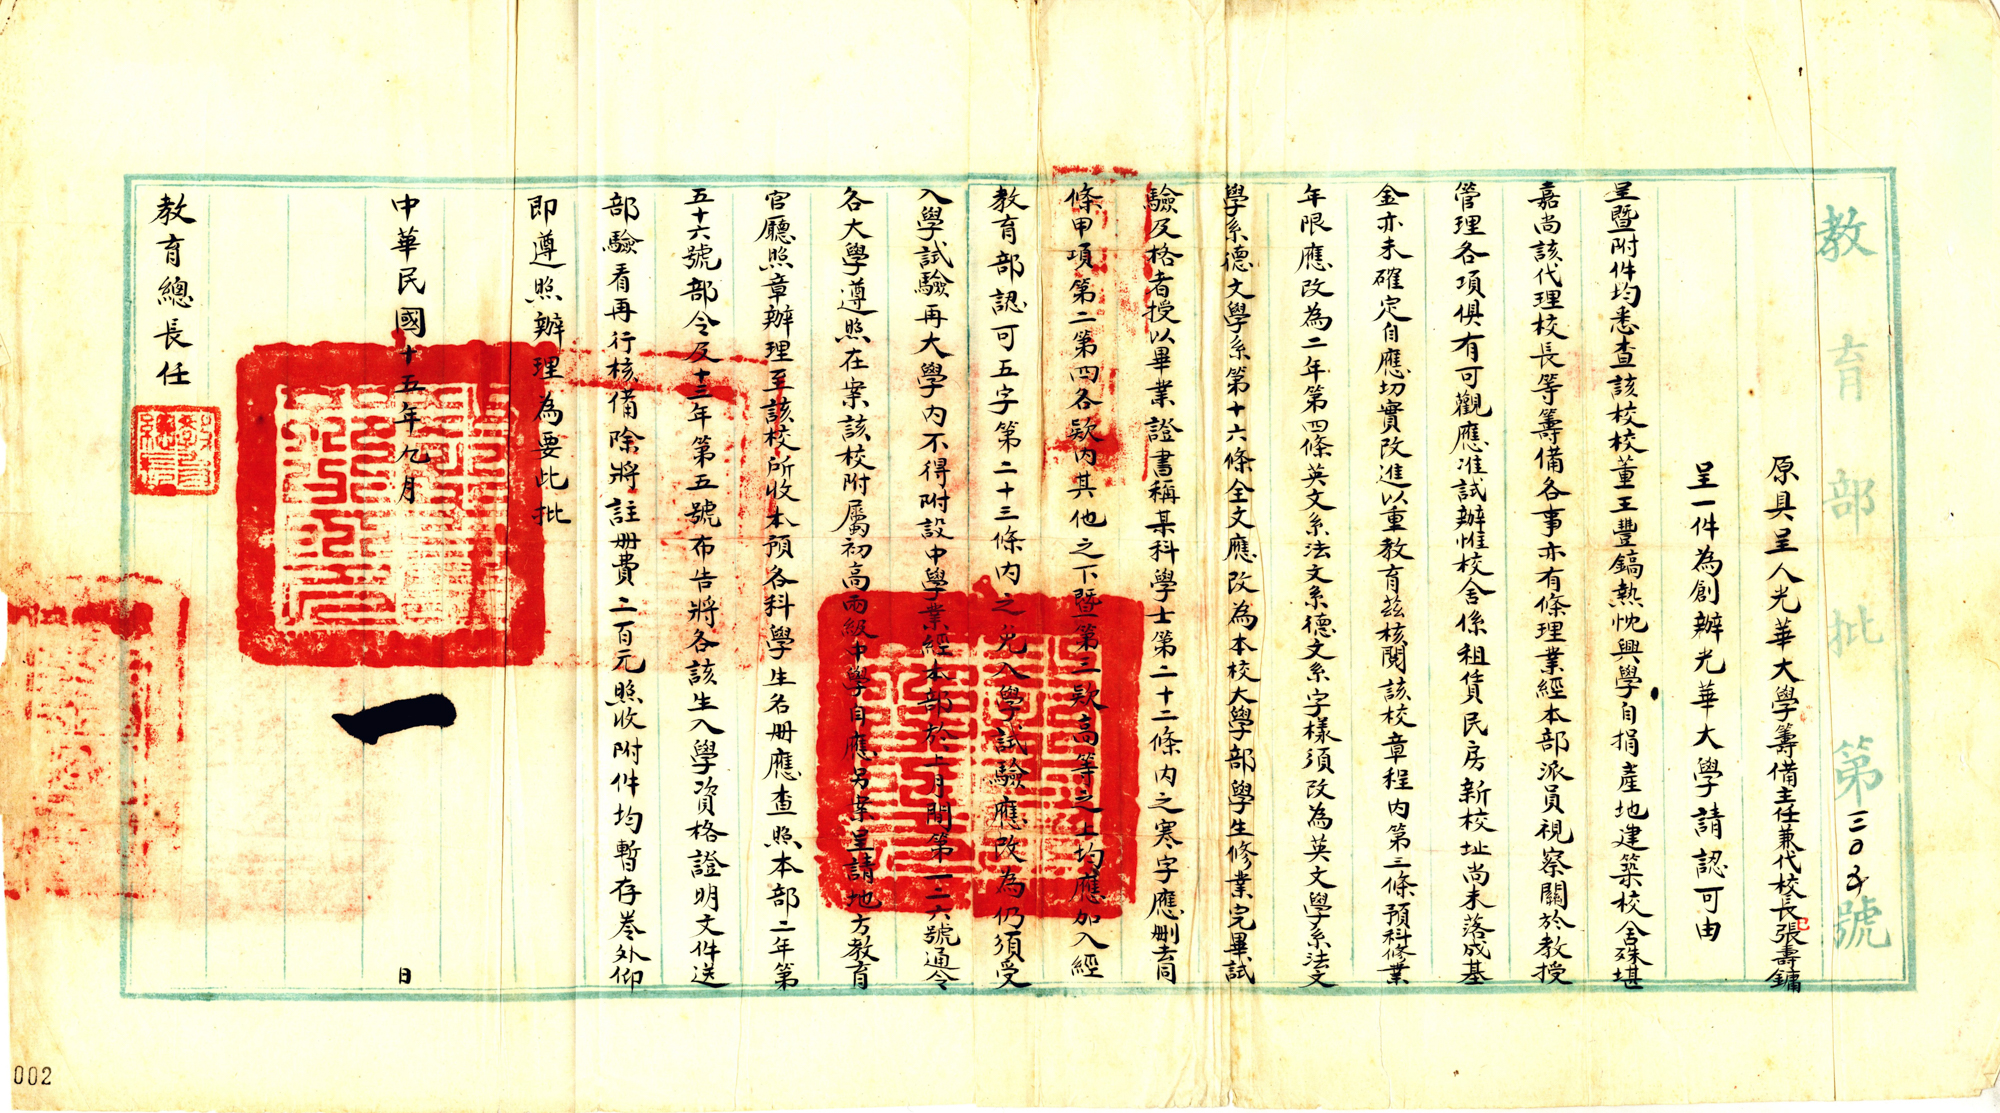 教育部批第三〇五號
原具呈人光華大學籌備主任兼代校長張壽鏞
呈一件為創辦光華大學請認可由
呈暨附件均悉查該校校董王豐鎬熱忱興學自捐產地建築校舍殊堪
嘉尚該代理校長等籌備各事亦有條理業經本部派員視察關於教授
管理各項俱有可觀應准試辦惟校舍係租賃民房新校址尚未落成基
金亦未確定自應切實改進以重教育茲核閱該校章程內第三條預科修業
年限應改為二年第四條英文系法文系德文系字樣須改為英文學系法文
學系德文學系第十六條全文應改為本校大學部學生修業完畢試
驗及格者授以畢業證書稱某科學士第二十二條內之寒字應刪去同
條甲項第二第四各欵內其他之下暨第三欵高等之上均應加入經
教育部認可五字第二十三條內之免入學試驗應改為仍須受
入學試驗再大學內不得附設中學業經本部於上月間第一二六號通令
各大學遵照在案該校附屬初高兩級中學自應另案呈請地方教育
官廳照章辦理至該校所收本預各科學生名册應查照本部二年第
五十六號部令及十三年第五號布告將各該生入學資格證明文件送
部驗看再行核備除將註册費二百元照收附件均暫存卷外仰
即遵照辦理為要此批
中華民國十五年九月 日
教育總長任
002